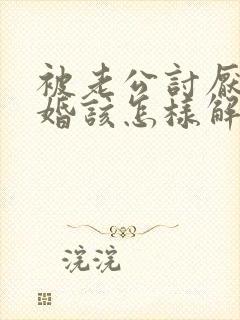 被老公討厭
婚該怎樣解
浣浣